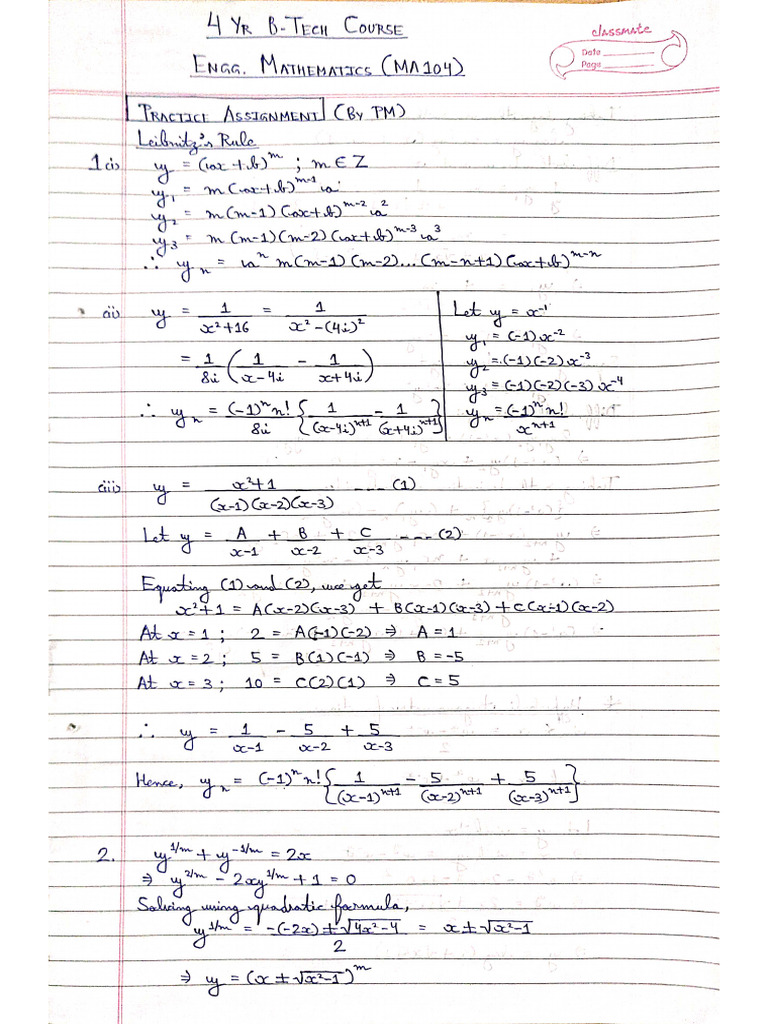 4 Yr B-Tech Course
Engg. Mathematics (MA104)
classmate
Date
Page
Practice Assignment (By PM)
Leibnitz's Rule
1 (i) y = (ax+b)^m ; m ∈ Z
y₁ = m(ax+b)^(m-1) a
y₂ = m(m-1)(ax+b)^(m-2) a²
y₃ = m(m-1)(m-2)(ax+b)^(m-3) a³
∴ yₙ = aⁿ m(m-1)(m-2)...(m-n+1)(ax+b)^(m-n)
(ii) y = 1/(x²+16) = 1/(x²-(4i)²)
= 1/8i (1/(x-4i) - 1/(x+4i))
∴ yₙ = (-1)ⁿ n!/8i {1/(x-4i)^(n+1) - 1/(x+4i)^(n+1)}
Let y = x⁻¹
y₁ = (-1)x⁻²
y₂ = (-1)(-2)x⁻³
y₃ = (-1)(-2)(-3)x⁻⁴
yₙ = (-1)ⁿ n!/x^(n+1)
(iii) y = (x²+1)/((x-1)(x-2)(x-3)) --- (1)
Let y = A/(x-1) + B/(x-2) + C/(x-3) --- (2)
Equating (1) and (2), we get
x²+1 = A(x-2)(x-3) + B(x-1)(x-3) + C(x-1)(x-2)
At x = 1 ; 2 = A(-1)(-2) ⇒ A = 1
At x = 2 ; 5 = B(1)(-1) ⇒ B = -5
At x = 3 ; 10 = C(2)(1) ⇒ C = 5
∴ y = 1/(x-1) - 5/(x-2) + 5/(x-3)
Hence, yₙ = (-1)ⁿ n! {1/(x-1)^(n+1) - 5/(x-2)^(n+1) + 5/(x-3)^(n+1)}
2. y^(1/m) + y^(-1/m) = 2x
⇒ y^(2/m) - 2xy^(1/m) + 1 = 0
Solving using quadratic formula,
y^(1/m) = (-(-2x) ± √(4x²-4))/2 = x ± √(x²-1)
⇒ y = (x ± √(x²-1))^m